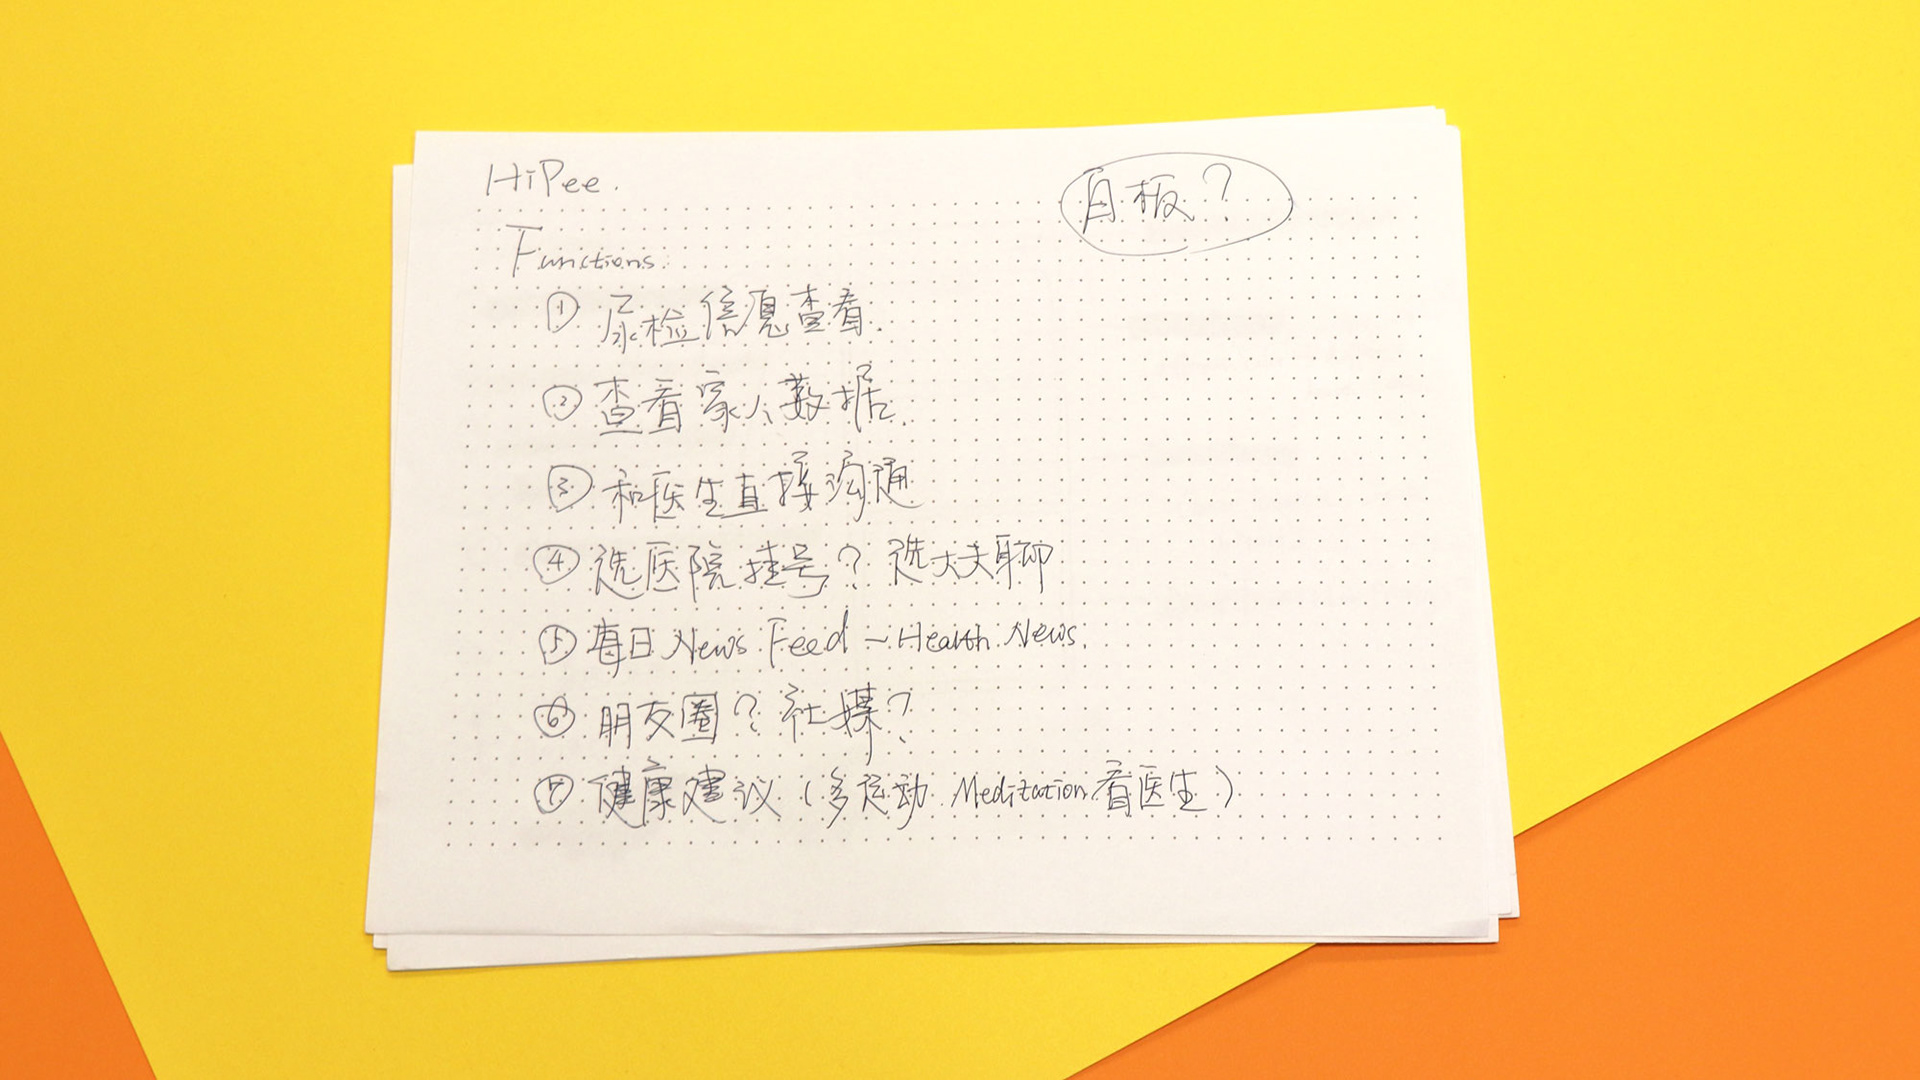 HiPee.
白板?
Functions.
① 尿检信息查看.
② 查看家人数据.
③ 和医生直接沟通
④ 选医院挂号? 选大夫聊
⑤ 每日 News Feed ~ Health News.
⑥ 朋友圈? 社媒?
⑦ 健康建议 (多运动. Meditation 看医生)